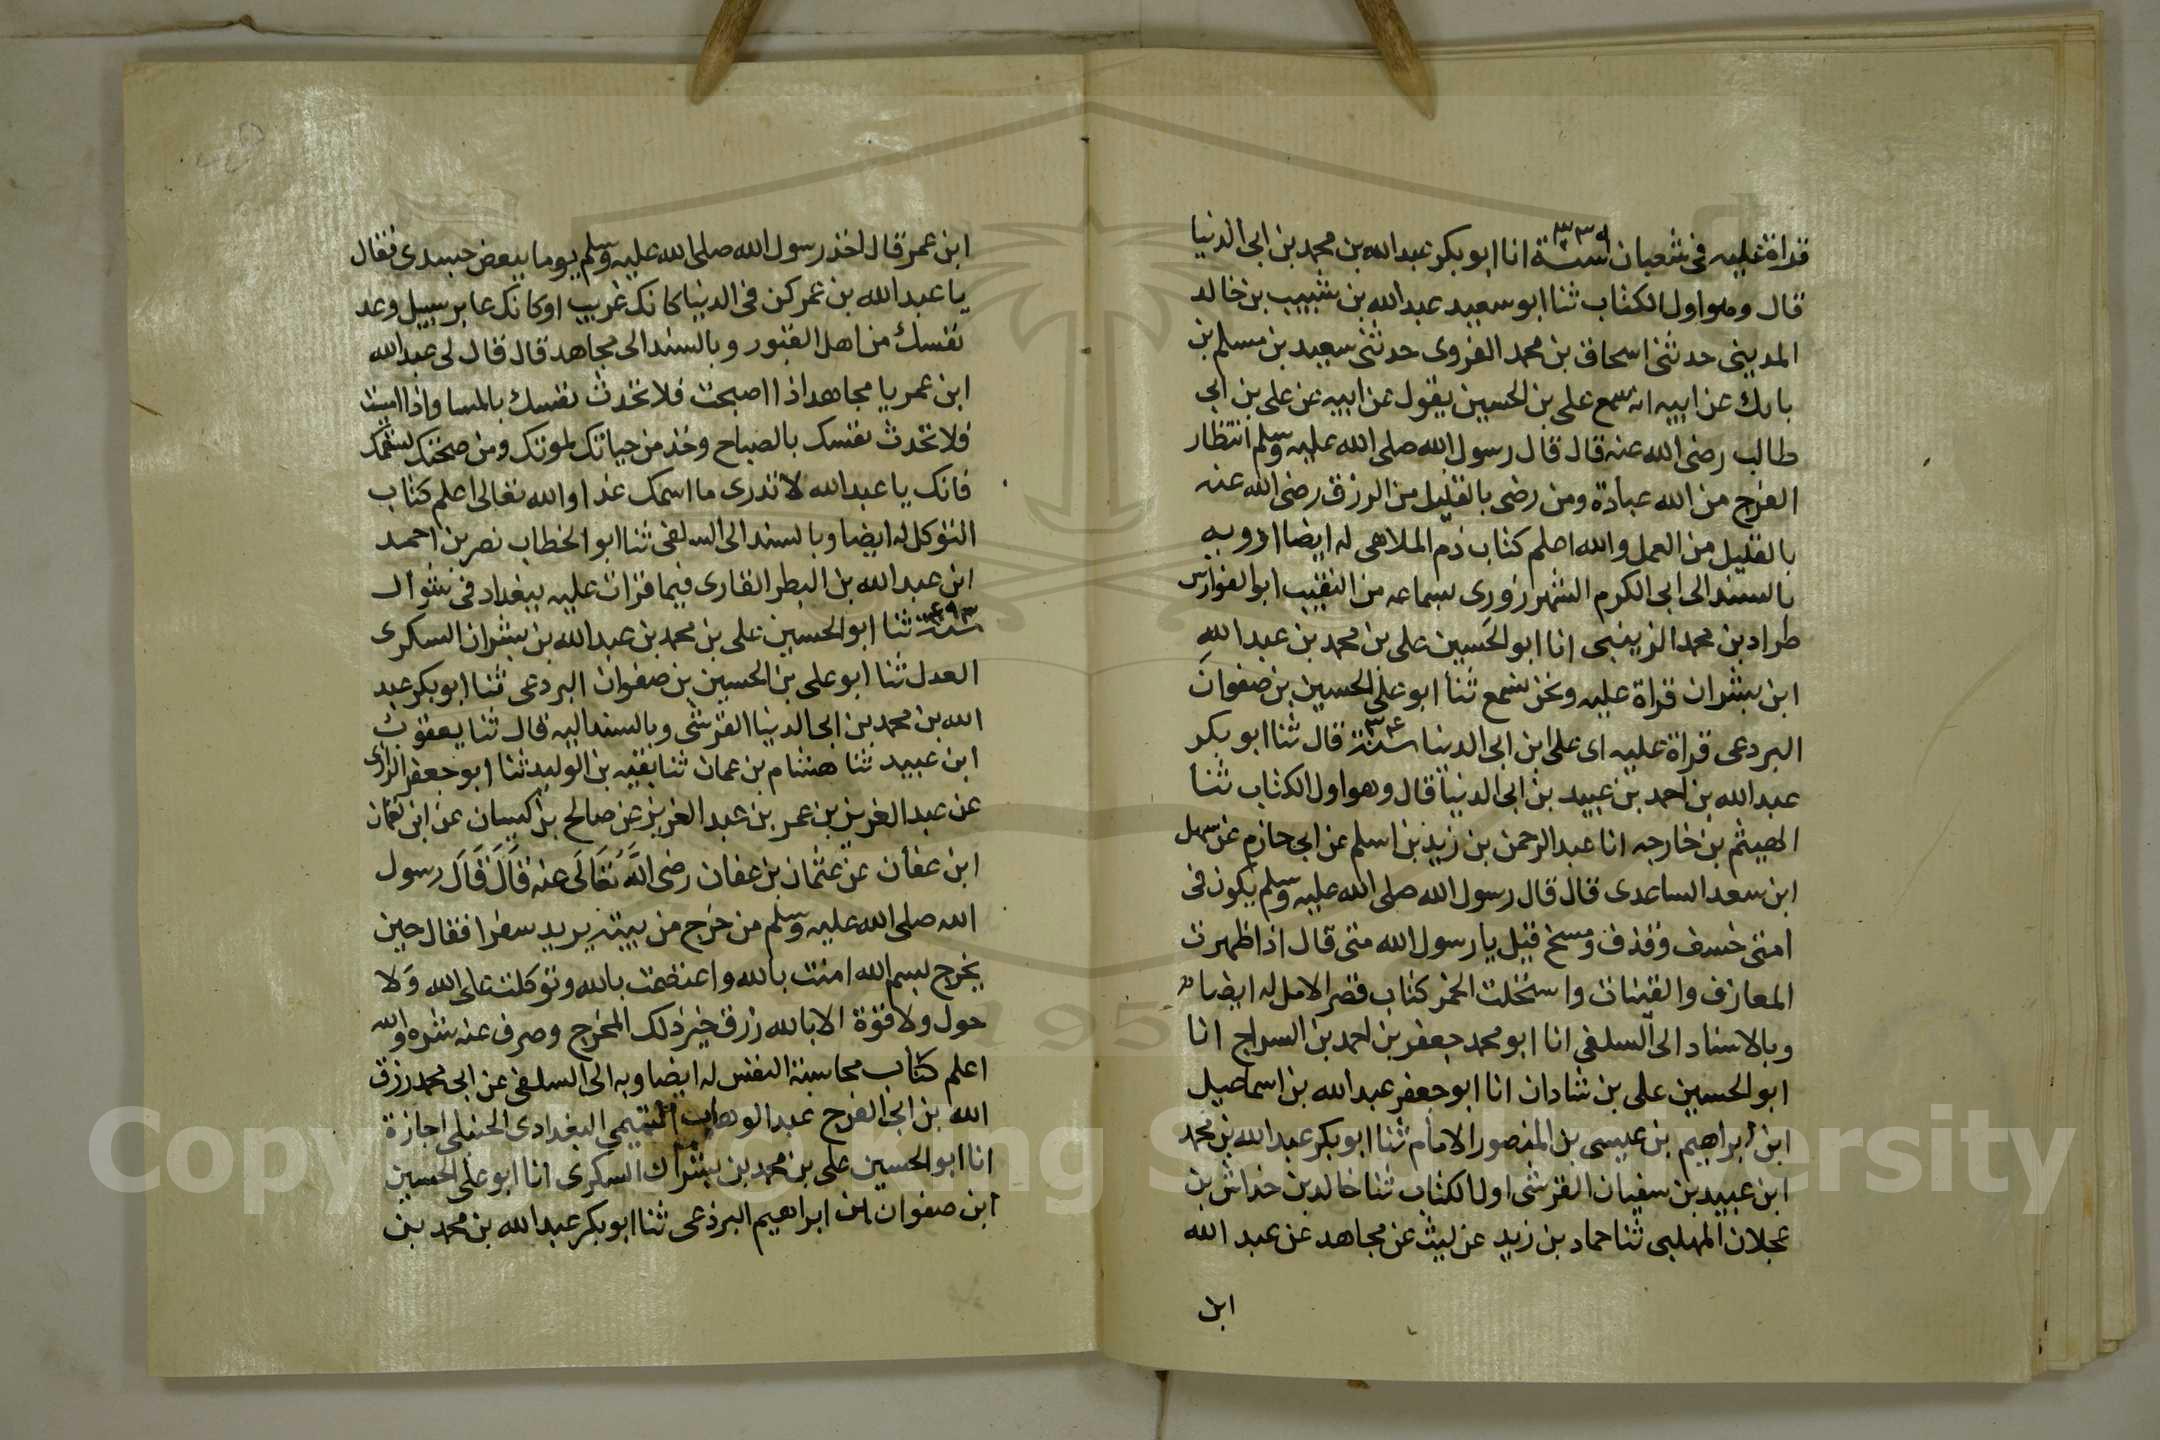 قراة عليه فى شعبان سنة ٣٣٩ انا ابو بكر عبدالله بن محمد بن ابى الدنيا
قال وهو اول الكتاب ثنا ابو سعيد عبدالله بن شبيب بن خالد
المدينى حدثنى اسحاق بن محمد الفروى حدثنى سعيد بن مسلم بن
بابك عن ابيه انه سمع على بن الحسين يقول عن ابيه عن على بن ابى
طالب رضى الله عنه قال قال رسول الله صلى الله عليه وسلم انتظار
الفرج من الله عبادة ومن رضى بالقليل من الرزق رضى الله عنه
بالقليل من العمل والله اعلم كتاب ذم الملاهى له ايضا اروبه
بالسند الى ابى الكرم الشهرزورى بسماعه من النقيب ابو الفوارس
طراد بن محمد الزينبى انا ابو الحسين على بن محمد بن عبدالله
ابن بشران قراة عليه ونحن نسمع ثنا ابو على الحسين بن صفوان
البردعى قراة عليه اى على ابن ابى الدنيا سنة قال ثنا ابو بكر
عبدالله بن احمد بن عبيد بن ابى الدنيا قال وهو اول الكتاب ثنا
الهيثم بن خارجه انا عبد الرحمن بن زيد بن اسلم عن ابى حازم عن سهل
ابن سعد الساعدى قال قال رسول الله صلى الله عليه وسلم يكون فى
امتى خسف وقذف ومسخ قيل يا رسول الله متى قال اذا ظهرت
المعازف والقينات واستحلت الخمر كتاب قصر الامل له ايضا
وبالاسناد الى السلفى انا ابو محمد جعفر بن احمد بن السراج انا
ابو الحسين على بن شادان انا ابو جعفر عبدالله بن اسماعيل
ابن ابراهيم بن عيسى بن المنصور الامام ثنا ابو بكر عبدالله بن محمد
ابن عبيد بن سفيان القرشى اول الكتاب ثنا خالد بن خداش بن
عجلان المهلبى ثنا حماد بن زيد عن ليث عن مجاهد عن عبد الله
ابن
ابن عمر قال اخذ رسول الله صلى الله عليه وسلم يوما ببعض جسدى فقال
يا عبدالله بن عمر كن فى الدنيا كانك غريب او كانك عابر سبيل وعد
نفسك من اهل القبور وبالسند الى مجاهد قال قال لى عبدالله
ابن عمر يا مجاهد اذا اصبحت فلا تحدث نفسك بالمسا واذا امسيت
فلا تحدث نفسك بالصباح وخذ من حياتك لموتك ومن صحتك لسقمك
فانك يا عبدالله لا تدرى ما اسمك غدا والله تعالى اعلم كتاب
التوكل له ايضا وبالسند الى السلفى ثنا ابو الخطاب نصر بن احمد
ابن عبدالله بن البطر القارى فيما قرات عليه ببغداد فى شوال
سنة ٤٩٣ ثنا ابو الحسين على بن محمد بن عبدالله بن بشران السكرى
العدل ثنا ابو على بن الحسين بن صفوان البردعى ثنا ابو بكر عبد
الله بن محمد بن ابى الدنيا القرشى وبالسند اليه قال ثنا يعقوب
ابن عبيد ثنا هشام بن عمان ثنا بقيه بن الوليد ثنا ابو جعفر الرازى
عن عبد العزيز بن عمر بن عبد العزيز عن صالح بن كيسان عن ابن لعثمان
ابن عفان عن عثمان بن عفان رضى الله تعالى عنه قال قال رسول
الله صلى الله عليه وسلم من خرج من بيته يريد سفرا فقال حين
يخرج بسم الله امنت بالله واعتصمت بالله وتوكلت على الله ولا
حول ولا قوة الا بالله رزق خير ذلك المخرج وصرف عنه شره والله
اعلم كتاب محاسبة النفس له ايضا وبه الى السلفى عن ابى محمد رزق
الله بن ابى الفرج عبد الوهاب التميمي البغدادى الحنبلى اجازة
انا ابو الحسين على بن محمد بن بشران السكرى انا ابو على الحسين
ابن صفوان ابن ابراهيم البرذعى ثنا ابو بكر عبدالله بن محمد بن